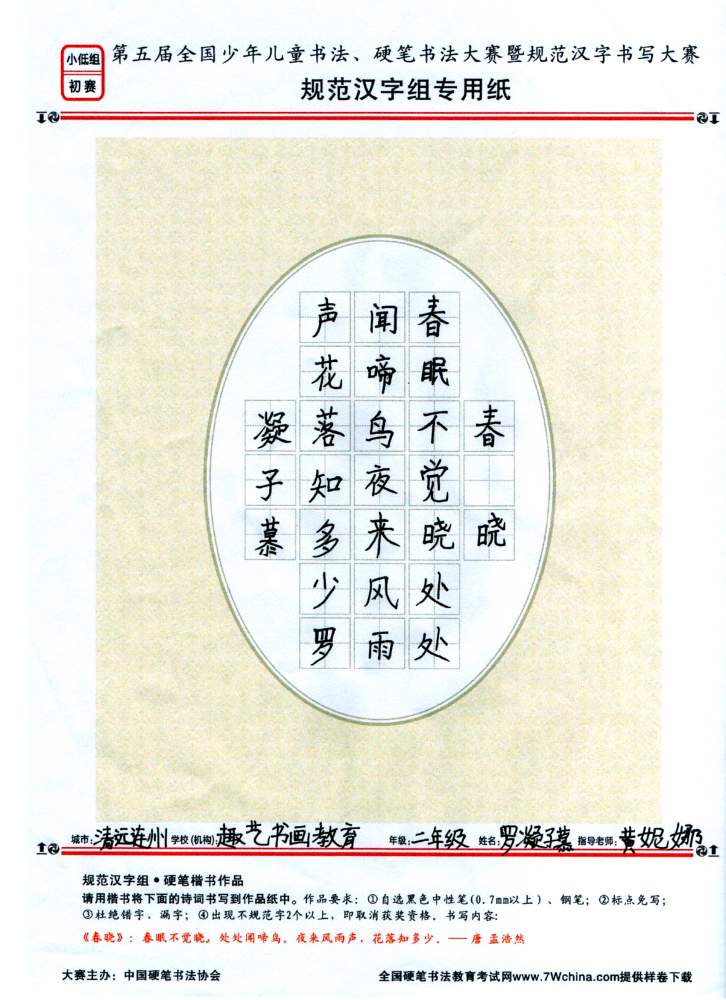 小低组
初赛
第五届全国少年儿童书法、硬笔书法大赛暨规范汉字书写大赛
规范汉字组专用纸
春晓
春眠不觉晓处处
闻啼鸟夜来风雨
声花落知多少罗
凝子慕
城市:清远连州 学校(机构):趣艺书画教育 年级:二年级 姓名:罗凝子慕 指导老师:黄妮娜
规范汉字组•硬笔楷书作品
请用楷书将下面的诗词书写到作品纸中。作品要求：①自选黑色中性笔(0.7mm以上)、钢笔；②标点免写；
③杜绝错字、漏字；④出现不规范字2个以上，即取消获奖资格。书写内容:
《春晓》：春眠不觉晓，处处闻啼鸟。夜来风雨声，花落知多少。——唐 孟浩然
大赛主办：中国硬笔书法协会 全国硬笔书法教育考试网www.7Wchina.com提供样卷下载